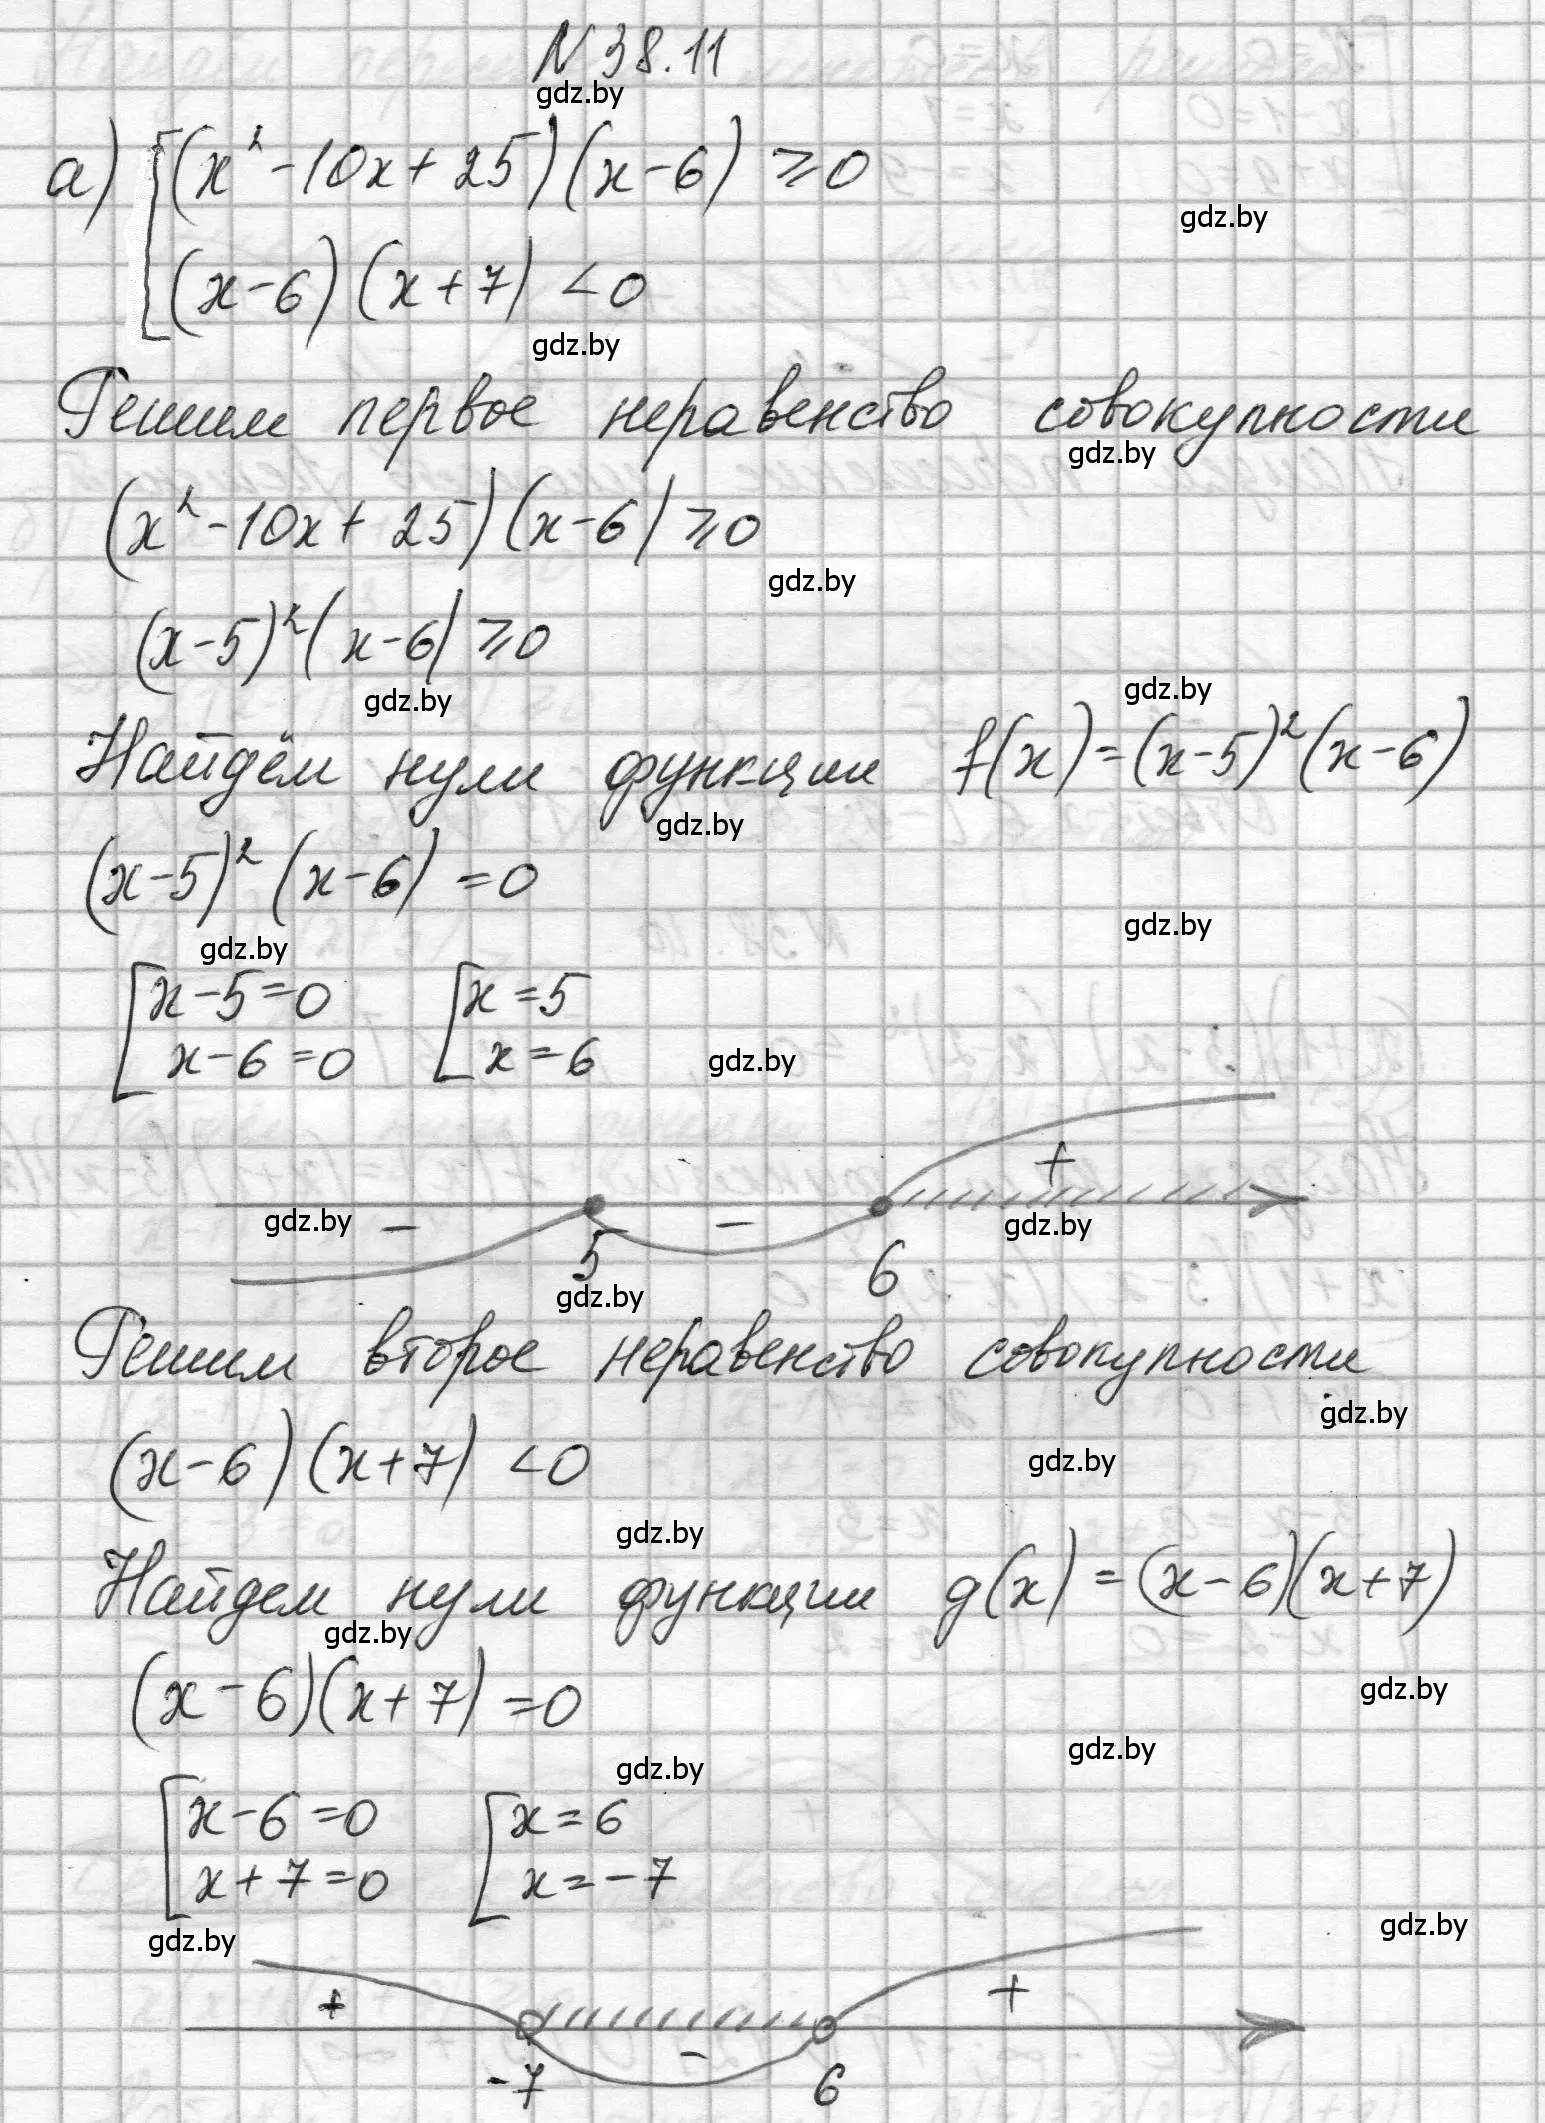 N 38.11
gdz.by
а) [(x² - 10x + 25)(x - 6) ⩾ 0
gdz.by
(x - 6)(x + 7) < 0
gdz.by
Решим первое неравенство совокупности
gdz.by
(x² - 10x + 25)(x - 6) ⩾ 0
gdz.by
(x - 5)²(x - 6) ⩾ 0
gdz.by
gdz.by
Найдём нули функции f(x) = (x - 5)²(x - 6)
gdz.by
(x - 5)²(x - 6) = 0
gdz.by
gdz.by
[x - 5 = 0 [x = 5
x - 6 = 0 x = 6
gdz.by
+
gdz.by - - gdz.by
5 6
gdz.by
Решим второе неравенство совокупности
gdz.by
(x - 6)(x + 7) < 0
gdz.by
gdz.by
Найдем нули функции g(x) = (x - 6)(x + 7)
gdz.by
(x - 6)(x + 7) = 0
gdz.by
gdz.by
gdz.by
[x - 6 = 0 [x = 6
x + 7 = 0 x = -7
gdz.by
gdz.by
+ - +
-7 6